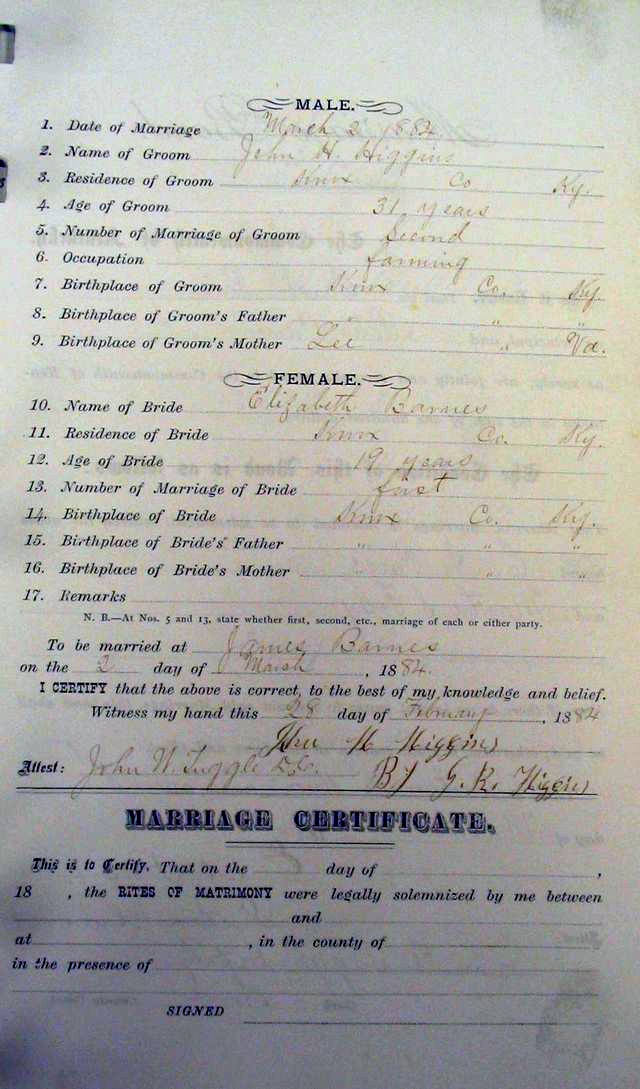 MALE.
1. Date of Marriage March 2 1884
2. Name of Groom John H. Higgins
3. Residence of Groom Knox Co Ky.
4. Age of Groom 31 years
5. Number of Marriage of Groom Second
6. Occupation farming
7. Birthplace of Groom Knox Co. Ky.
8. Birthplace of Groom's Father " " "
9. Birthplace of Groom's Mother Lee " Va.
FEMALE.
10. Name of Bride Elizabeth Barnes
11. Residence of Bride Knox Co. Ky.
12. Age of Bride 19 years
13. Number of Marriage of Bride first
14. Birthplace of Bride Knox Co. Ky.
15. Birthplace of Bride's Father " " "
16. Birthplace of Bride's Mother " " "
17. Remarks
N. B.—At Nos. 5 and 13, state whether first, second, etc., marriage of each or either party.
To be married at James Barnes
on the 2 day of Marsh, 1884.
I CERTIFY that the above is correct, to the best of my knowledge and belief.
Witness my hand this 28 day of February, 1884
H Higgins
Attest: John W. Tuggle D.C. By G. R. Higgins
MARRIAGE CERTIFICATE.
This is to Certify, That on the day of ,
18 , the RITES OF MATRIMONY were legally solemnized by me between
and
at , in the county of
in the presence of
SIGNED